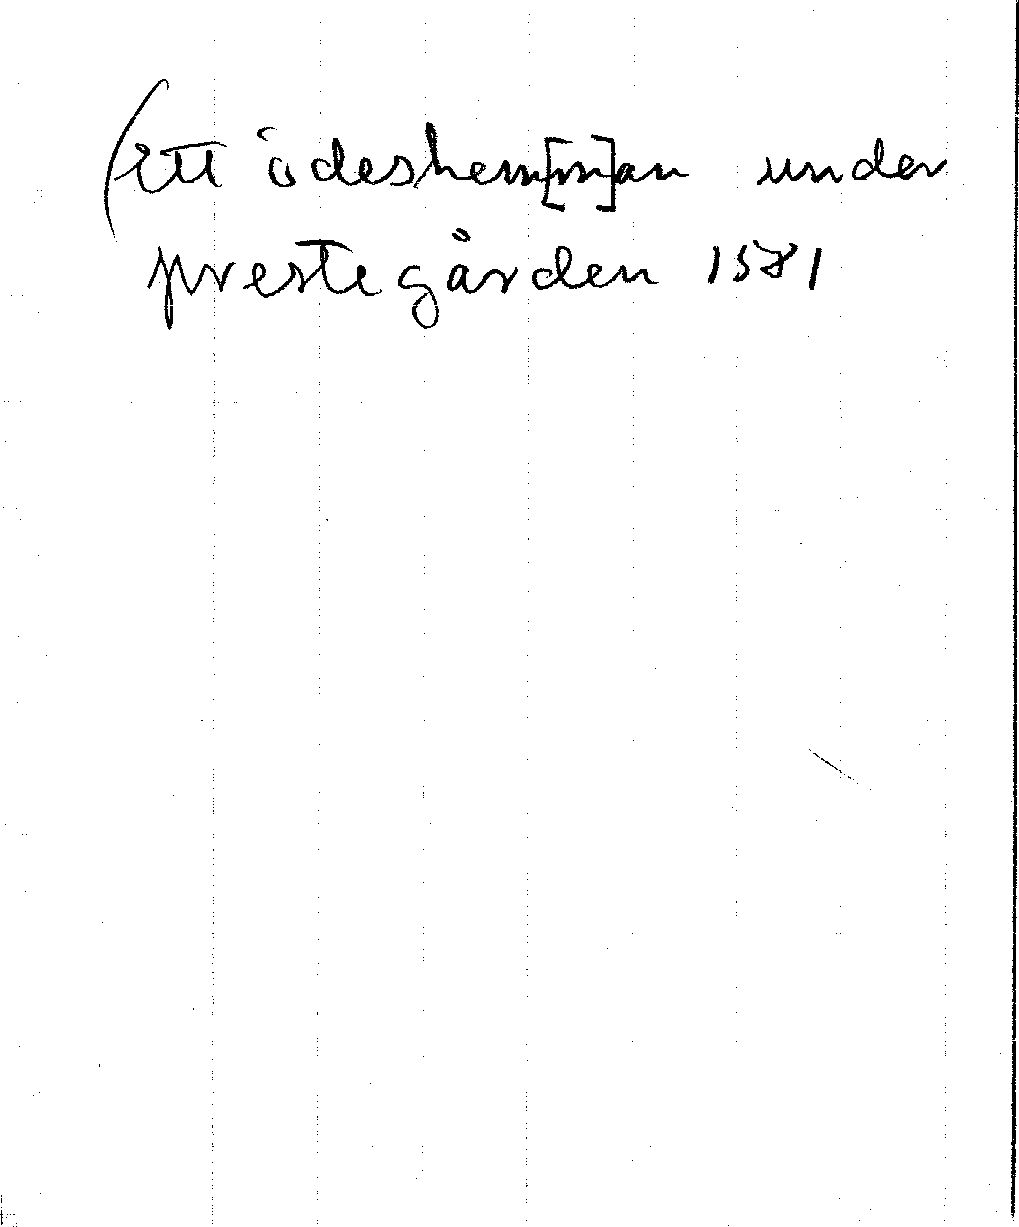 (ett ödeshem[m]an under
prestegården 1581